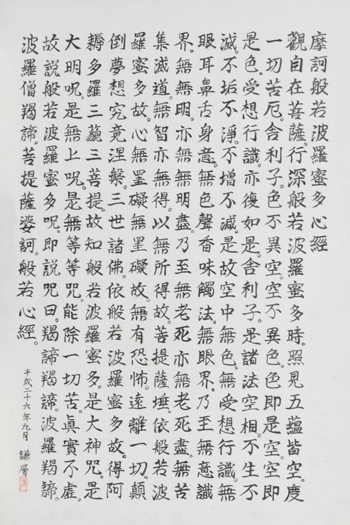 摩訶般若波羅蜜多心経
觀自在菩薩。行深般若波羅蜜多時。照見五蘊皆空。度
一切苦厄。舎利子。色不異空。空不異色。色即是空。空即
是色。受想行識亦復如是。舎利子。是諸法空相。不生不
滅。不垢不淨。不増不滅。是故空中無色。無受想行識。無
眼耳鼻舌身意。無色聲香味觸法。無眼界。乃至無意識
界。無無明。亦無無明盡。乃至無老死。亦無老死盡。無苦
集滅道。無智亦無得。以無所得故。菩提薩埵。依般若波
羅蜜多故。心無罣礙。無罣礙故。無有恐怖。遠離一切顛
倒夢想。究竟涅槃。三世諸佛。依般若波羅蜜多故。得阿
耨多羅三藐三菩提。故知般若波羅蜜多。是大神咒。是
大明呪。是無上呪。是無等等呪。能除一切苦。真實不虚。
故説般若波羅蜜多呪。即説呪曰羯諦。羯諦。波羅羯諦。
波羅僧羯諦。菩提薩婆訶。般若心經。
平成二十六年九月